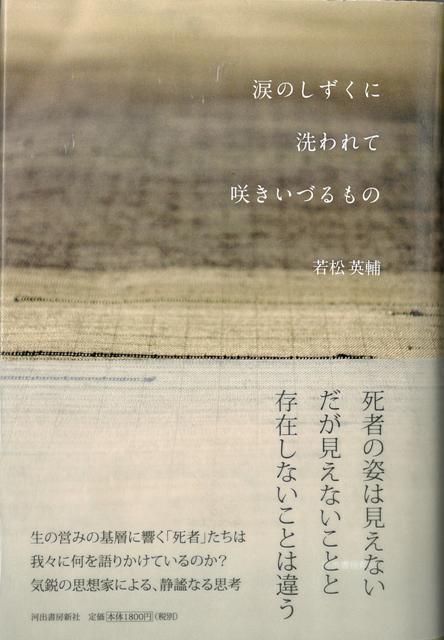 涙のしずくに
洗われて
咲きいづるもの
若松 英輔
死者の姿は見えない
だが見えないことと
存在しないことは違う
生の営みの基層に響く「死者」たちは
我々に何を語りかけているのか?
気鋭の思想家による、静謐なる思考
河出書房新社 定価 本体1800円(税別)